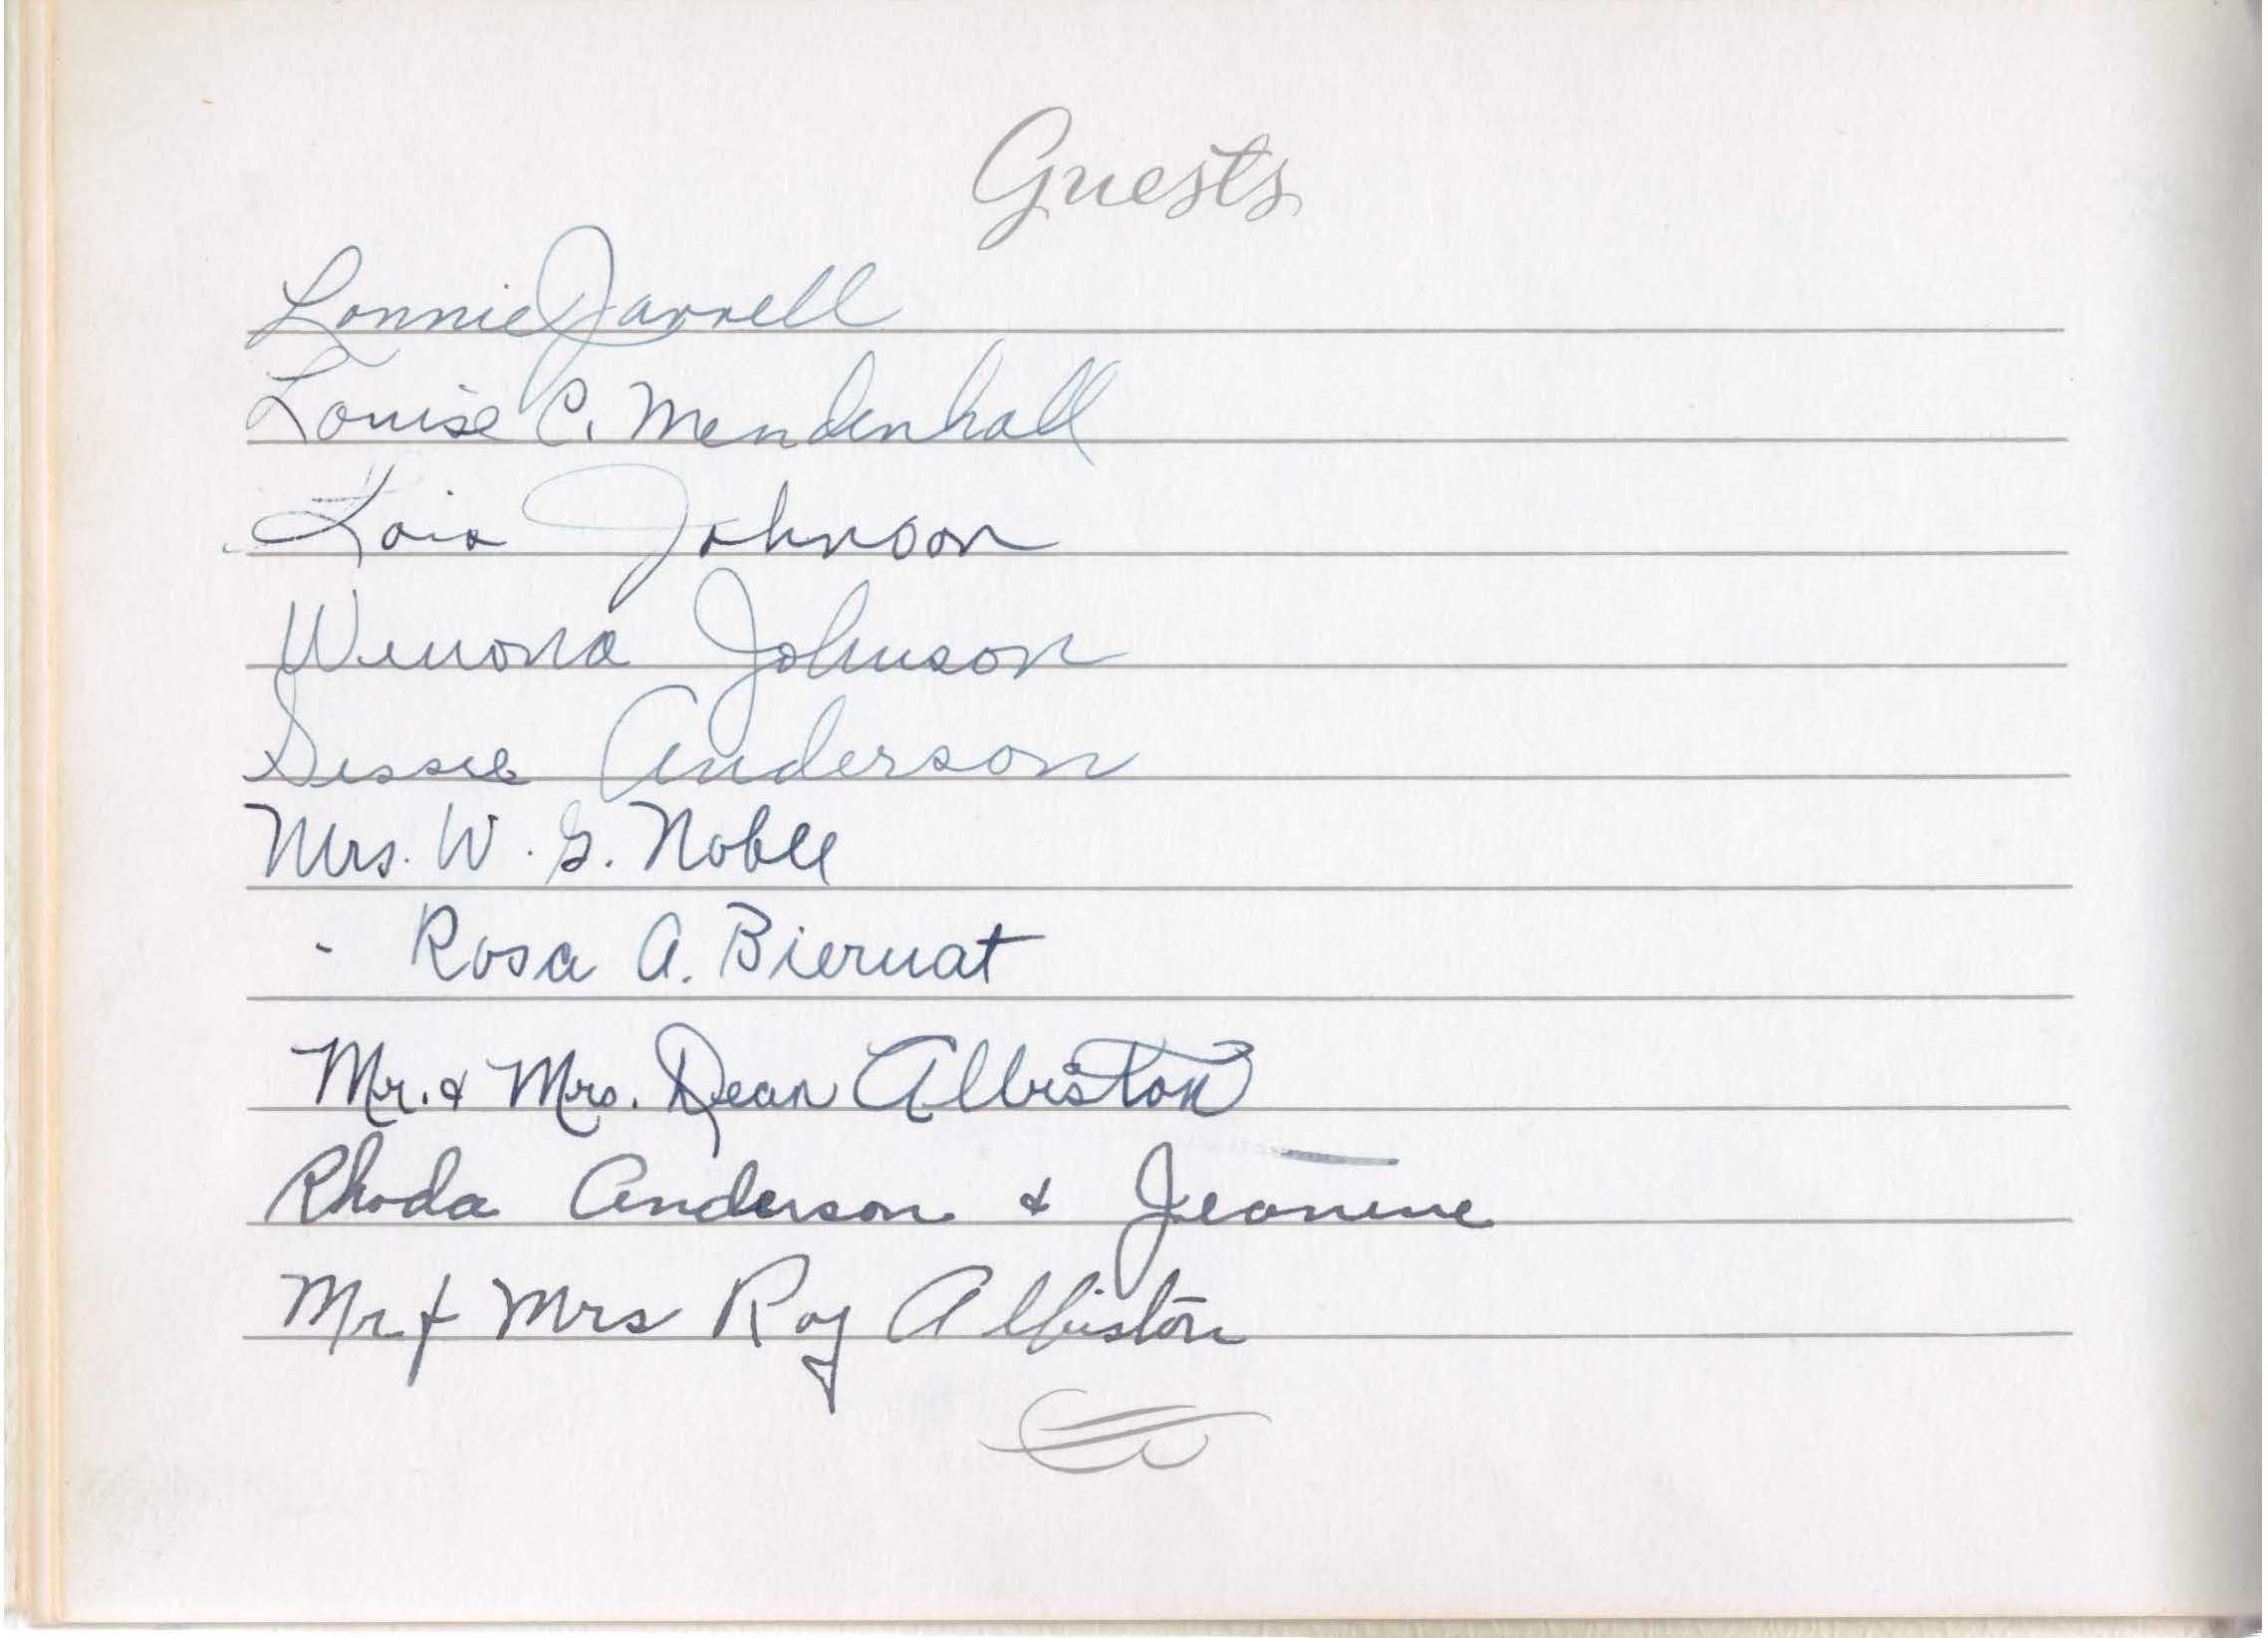 Guests
Lonnie Jarrell
Louise C. Mendenhall
Lois Johnson
Winona Johnson
Sissie Anderson
Mrs. W. G. Noble
Rosa A. Biernat
Mr. & Mrs. Dean Albiston
Rhoda Anderson & Jeanine
Mr & Mrs Roy Albiston